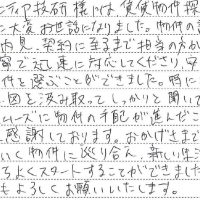 ディア技研 様には、賃貸物件探
に大変お世話になりました。物件の
内見、契約に至るまで担当の方が
寧で迅速に対応してくださり、安
件を選ぶことができました。特に
図を汲み取ってしっかりと聞いて
ムーズに物件の手配が進んだこ
感謝しております。おかげさまで
いい物件に巡り会え、新しい生活
ちよくスタートすることができました
もよろしくお願いいたします。